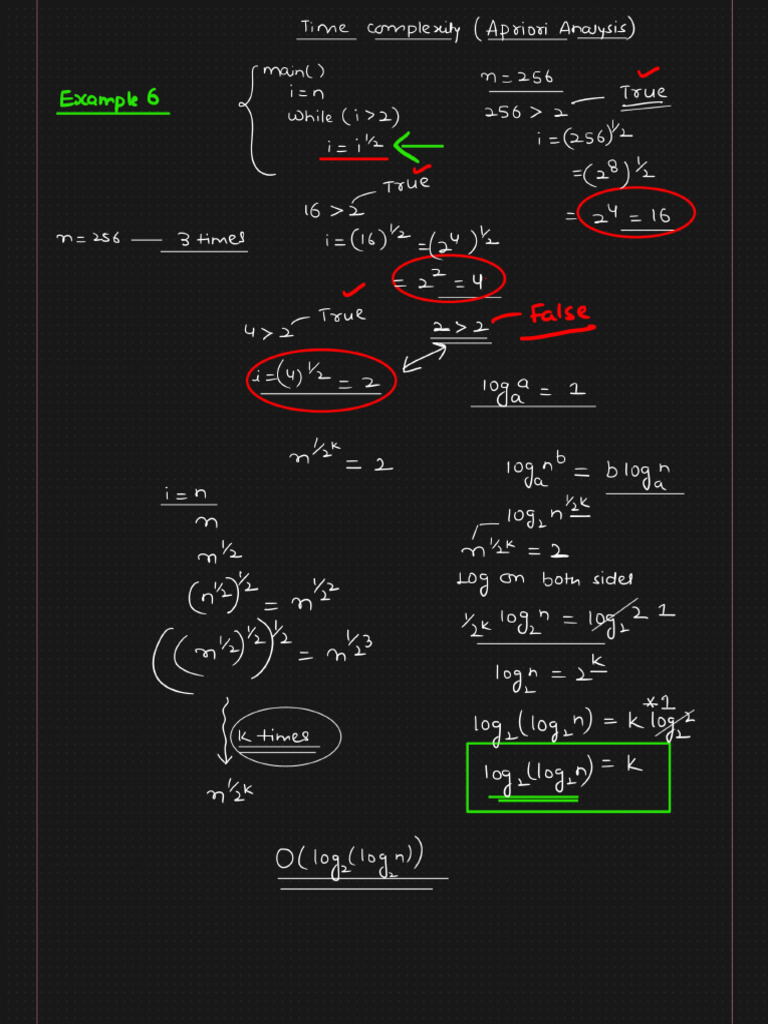 Time complexity (Apriori Analysis)
Example 6
main()
i=n
while (i>2)
i = i^1/2
n=256
256 > 2 — True
i=(256)^1/2
=(2^8)^1/2
= 2^4 = 16
16 > 2 — True
i=(16)^1/2 =(2^4)^1/2
= 2^2 = 4
n=256 — 3 times
4 > 2 — True
i=(4)^1/2 = 2
2 > 2 — False
log_a a = 1
n^1/2^k = 2
i=n
n
n^1/2
(n^1/2)^1/2 = n^1/2^2
((n^1/2)^1/2)^1/2 = n^1/2^3
k times
n^1/2^k
log_a n^b = b log_a n
log_2 n^1/2^k
n^1/2^k = 2
Log on both sides
1/2^k log_2 n = log_2 2 1
log_2 n = 2^k
log_2(log_2 n) = k log_2 2 *1
log_2(log_2 n) = k
O(log_2(log_2 n))